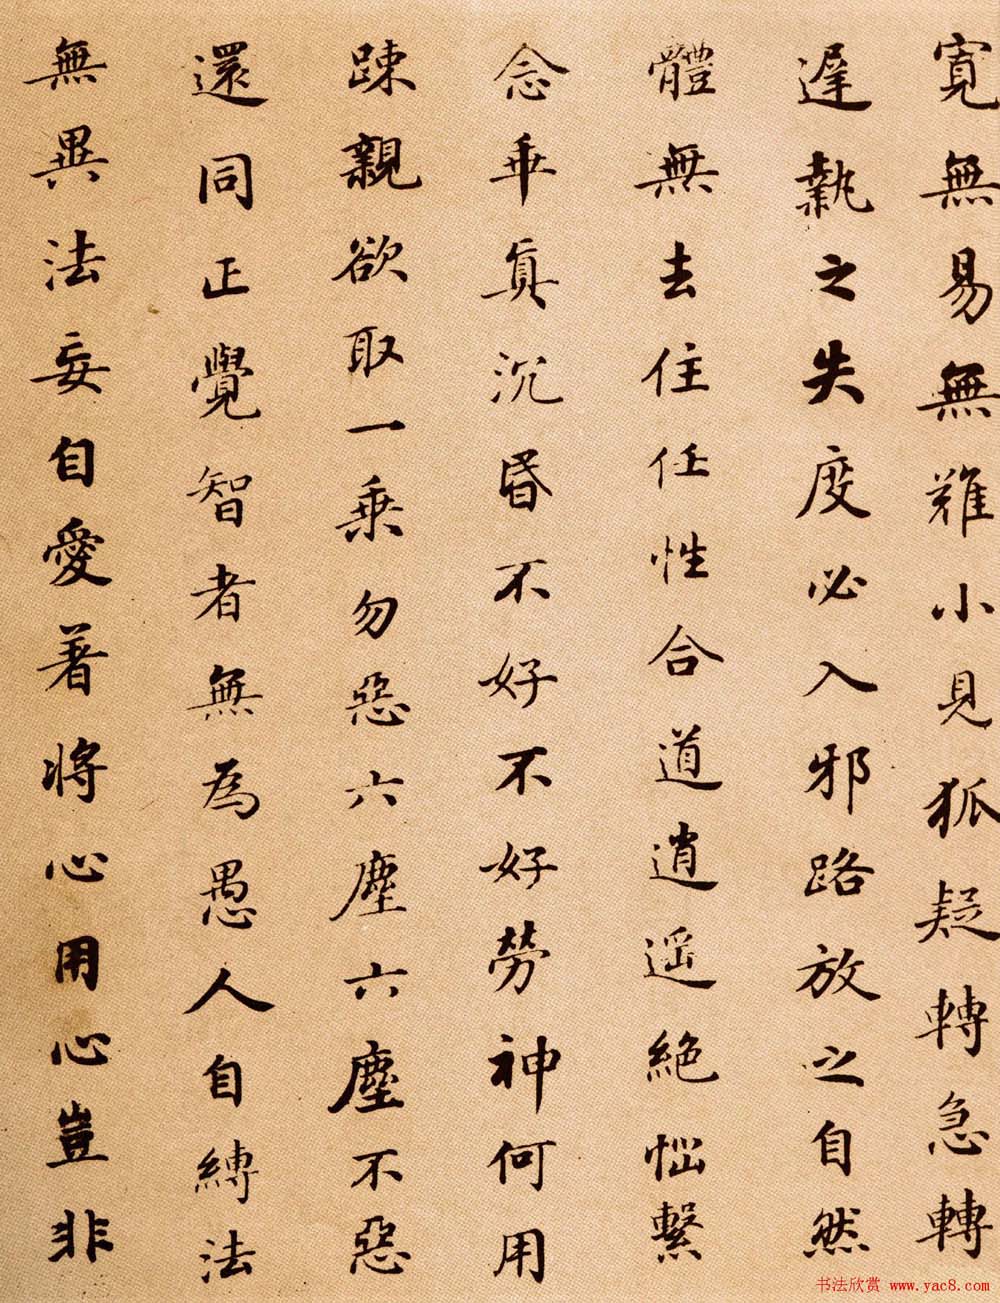 寛無易無難小見狐疑轉急轉
遅執之失度必入邪路放之自然
體無去住任性合道逍遥絶惱繫
念乖真沉昏不好不好勞神何用
踈親欲取一乗勿惡六塵六塵不惡
還同正覺智者無為愚人自縛法
無異法妄自愛著將心用心豈非
书法欣赏 www.yac8.com